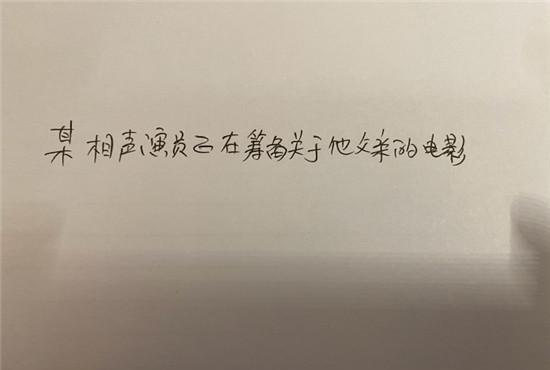 某相声演员正在筹备关于他父亲的电影